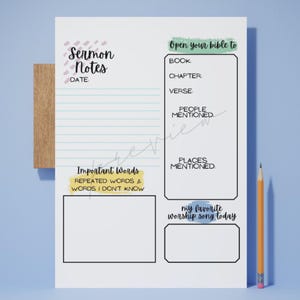 Sermon
Notes
DATE:
Important Words
REPEATED WORDS &
WORDS I DON'T KNOW
Open your bible to
BOOK:
CHAPTER:
VERSE:
PEOPLE
MENTIONED:
PLACES
MENTIONED:
my favorite
worship song today
preview